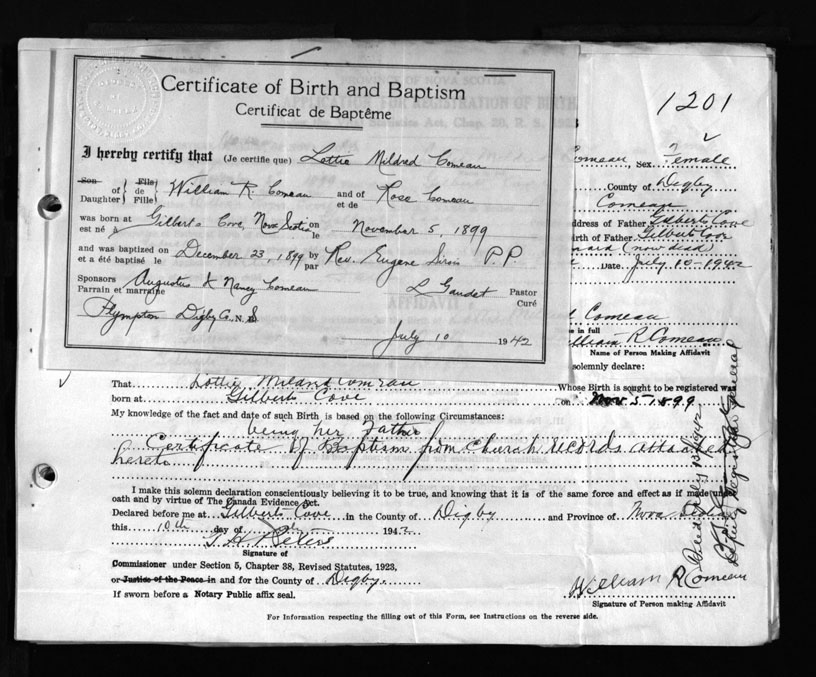 Certificate of Birth and Baptism
Certificat de Baptême
1201
I hereby certify that (Je certifie que) Lottie Mildred Comeau
Son of { Fils de
Daughter { Fille William R. Comeau and of et de Rose Comeau
was born at est né à Gilberts Cove, Nova Scotia on le November 5, 1899
and was baptized on et a été baptisé le December 23, 1899 by par Rev. Eugene P.P.
Sponsors Parrain et marraine Augustus & Nancy Comeau L Gaudet Pastor Curé
Plympton Digby Co. N.S
July 10 1942
PROVINCE OF NOVA SCOTIA
APPLICATION FOR REGISTRATION OF BIRTH
Comeau, Sex Female
County of Digby
Comeau
Address of Father Gilberts Cove
Birth of Father Gilberts Cove
(now died)
Date July 10-1942
AFFIDAVIT
Comeau
in full
William R Comeau
Name of Person Making Affidavit
solemnly declare:
That Lottie Comeau Whose Birth is sought to be registered was
born at Gilberts Cove on Nov 5 1899
My knowledge of the fact and date of such Birth is based on the following Circumstances:
being her Father
Certificate of Baptism from Church records attached
hereto
I make this solemn declaration conscientiously believing it to be true, and knowing that it is of the same force and effect as if made under
oath and by virtue of The Canada Evidence Act.
Declared before me at Gilberts Cove in the County of Digby and Province of Nova Scotia
this 10th day of July 1942
Signature of
Commissioner under Section 5, Chapter 38, Revised Statutes, 1923,
or Justice of the Peace in and for the County of Digby
If sworn before a Notary Public affix seal.
William R Comeau
Signature of Person making Affidavit
For Information respecting the filling out of this Form, see Instructions on the reverse side.
Deputy Registrar General